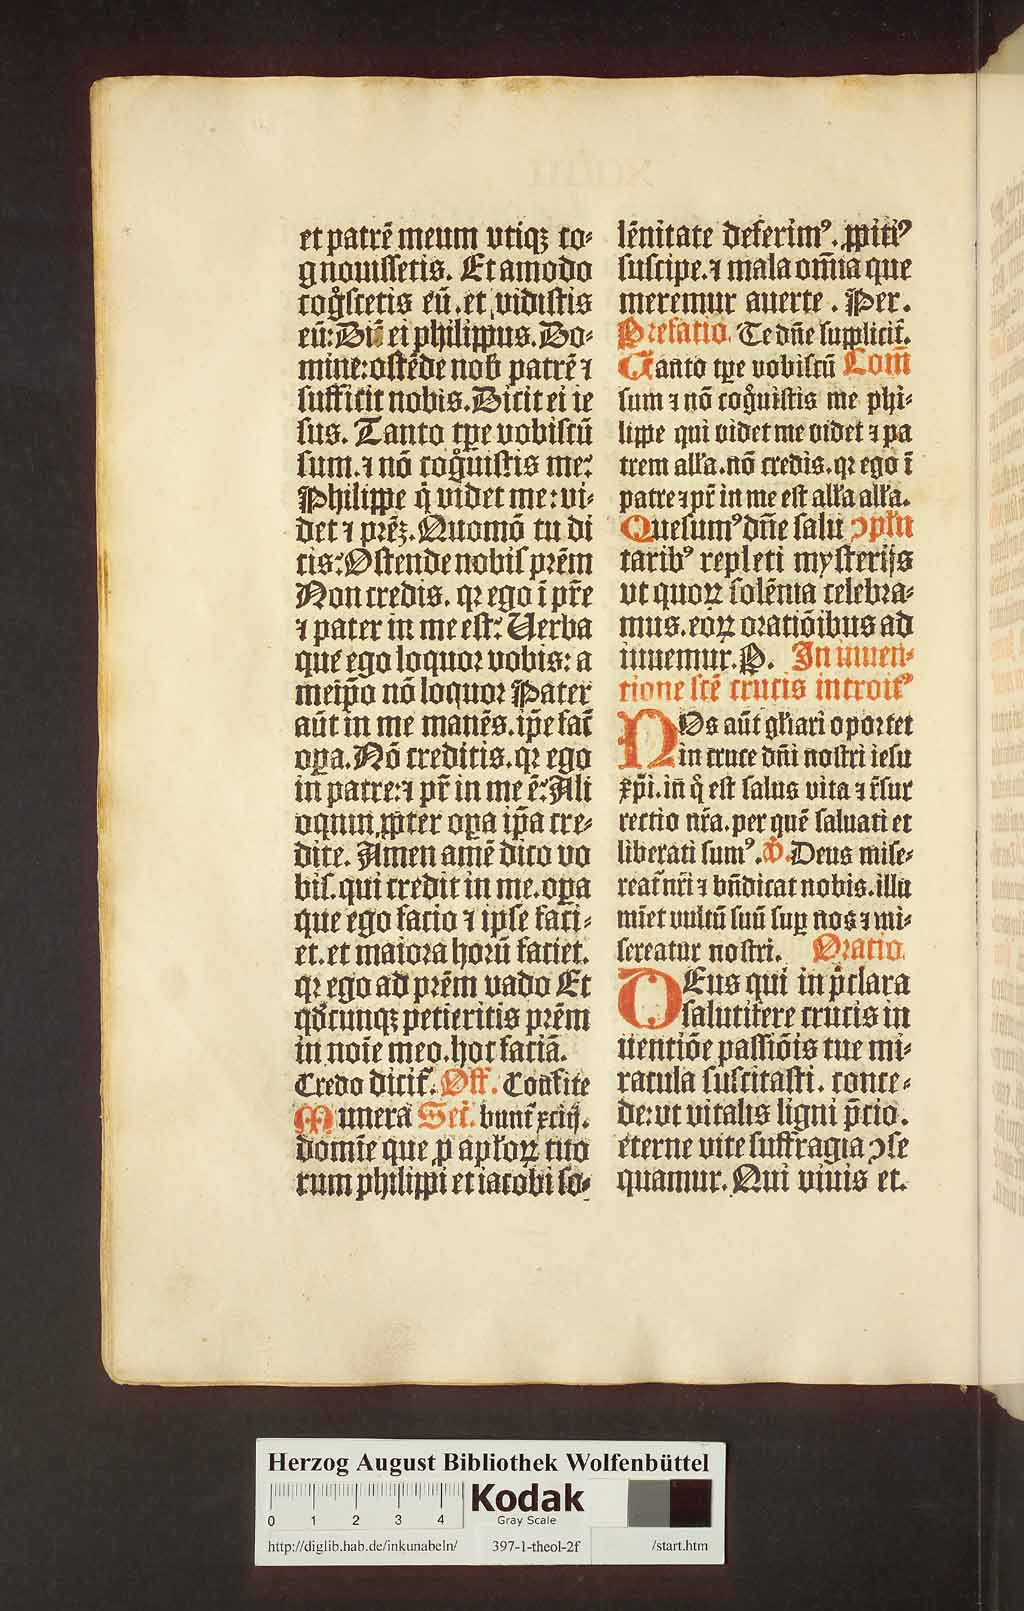 et patrē meum vtiqꝫ co⸗
gnouissetis. Et amodo
cogͦscetis eū. et vidistis
eū: Dīc̄ ei philippus. Do⸗
mine: ostēde nob̄ patrē ⁊
sufficit nobis. Dicit ei ie
sus. Tanto tꝑe vobiscū
sum. ⁊ nō cogͦuistis me:
Philippe q̇ videt me: vi⸗
det ⁊ prēꝫ. Quomō tu di
cis: Ostende nobis prēm
Non credis. qꝛ ego ī pr̄e
⁊ pater in me est: Uerba
que ego loquor vobis: a
meīpo nō loquor Pater
aūt in me manēs. ip̄e fac̄
oꝑa. Nō creditis. qꝛ ego
in patre: ⁊ pr̄ in me ē: Ali
oquin ꝓpter oꝑa ip̄a cre⸗
dite. Amen amē dico vo
bis. qui credit in me. oꝑa
que ego facio ⁊ ipse faci⸗
et. et maiora horū faciet.
qꝛ ego ad prēm vado Et
qd̄cunqꝫ petieritis prēm
in noīe meo. hoc faciā.
Credo dicit̄. Off. Confite
Munera Sec̄. bunt̄ xciij.
domīe que ꝓ apl̄oꝝ tuo
rum philippi et iacobi so⸗
lēnitate deferimꝰ. ꝓpitiꝰ
suscipe. ⁊ mala om̄ia que
meremur auerte. Per.
Prefatio. Te dn̄e supplicit̄.
Tanto tꝑe vobiscū Com̄
sum ⁊ nō cogͦuistis me phi⸗
lippe qui videt me videt ⁊ pa
trem all̄a. nō credis. qꝛ ego ī
patre ⁊ pr̄ in me est all̄a all̄a.
Quesumꝰ dn̄e salu ꝯpl̄n
taribꝰ repleti mysterijs
vt quoꝝ solēnia celebra⸗
mus. eoꝝ oratiōibus ad
iuuemur. P. In inuen⸗
tione scē crucis introitꝰ
NOs aūt gl̄iari oportet
in cruce dn̄i nostri iesu
xp̄i. in̄ q̇ est salus vita ⁊ r̄sur
rectio nr̄a. per quē saluati et
liberati sumꝰ. V̄. Deus mise⸗
reat̄ nr̄i ⁊ bn̄dicat nobis. illu
mīet vultū suū suꝑ nos ⁊ mi⸗
sereatur nostri. Oratio.
DEus qui in p̄clara
salutifere crucis in
uentiōe passiōis tue mi⸗
racula suscitasti. conce⸗
de: vt vitalis ligni p̄cio.
eterne vite suffragia ꝯse
quamur. Qui viuis et.
Herzog August Bibliothek Wolfenbüttel
0 1 2 3 4
Kodak
Gray Scale
http://diglib.hab.de/inkunabeln/ 397-1-theol-2f /start.htm